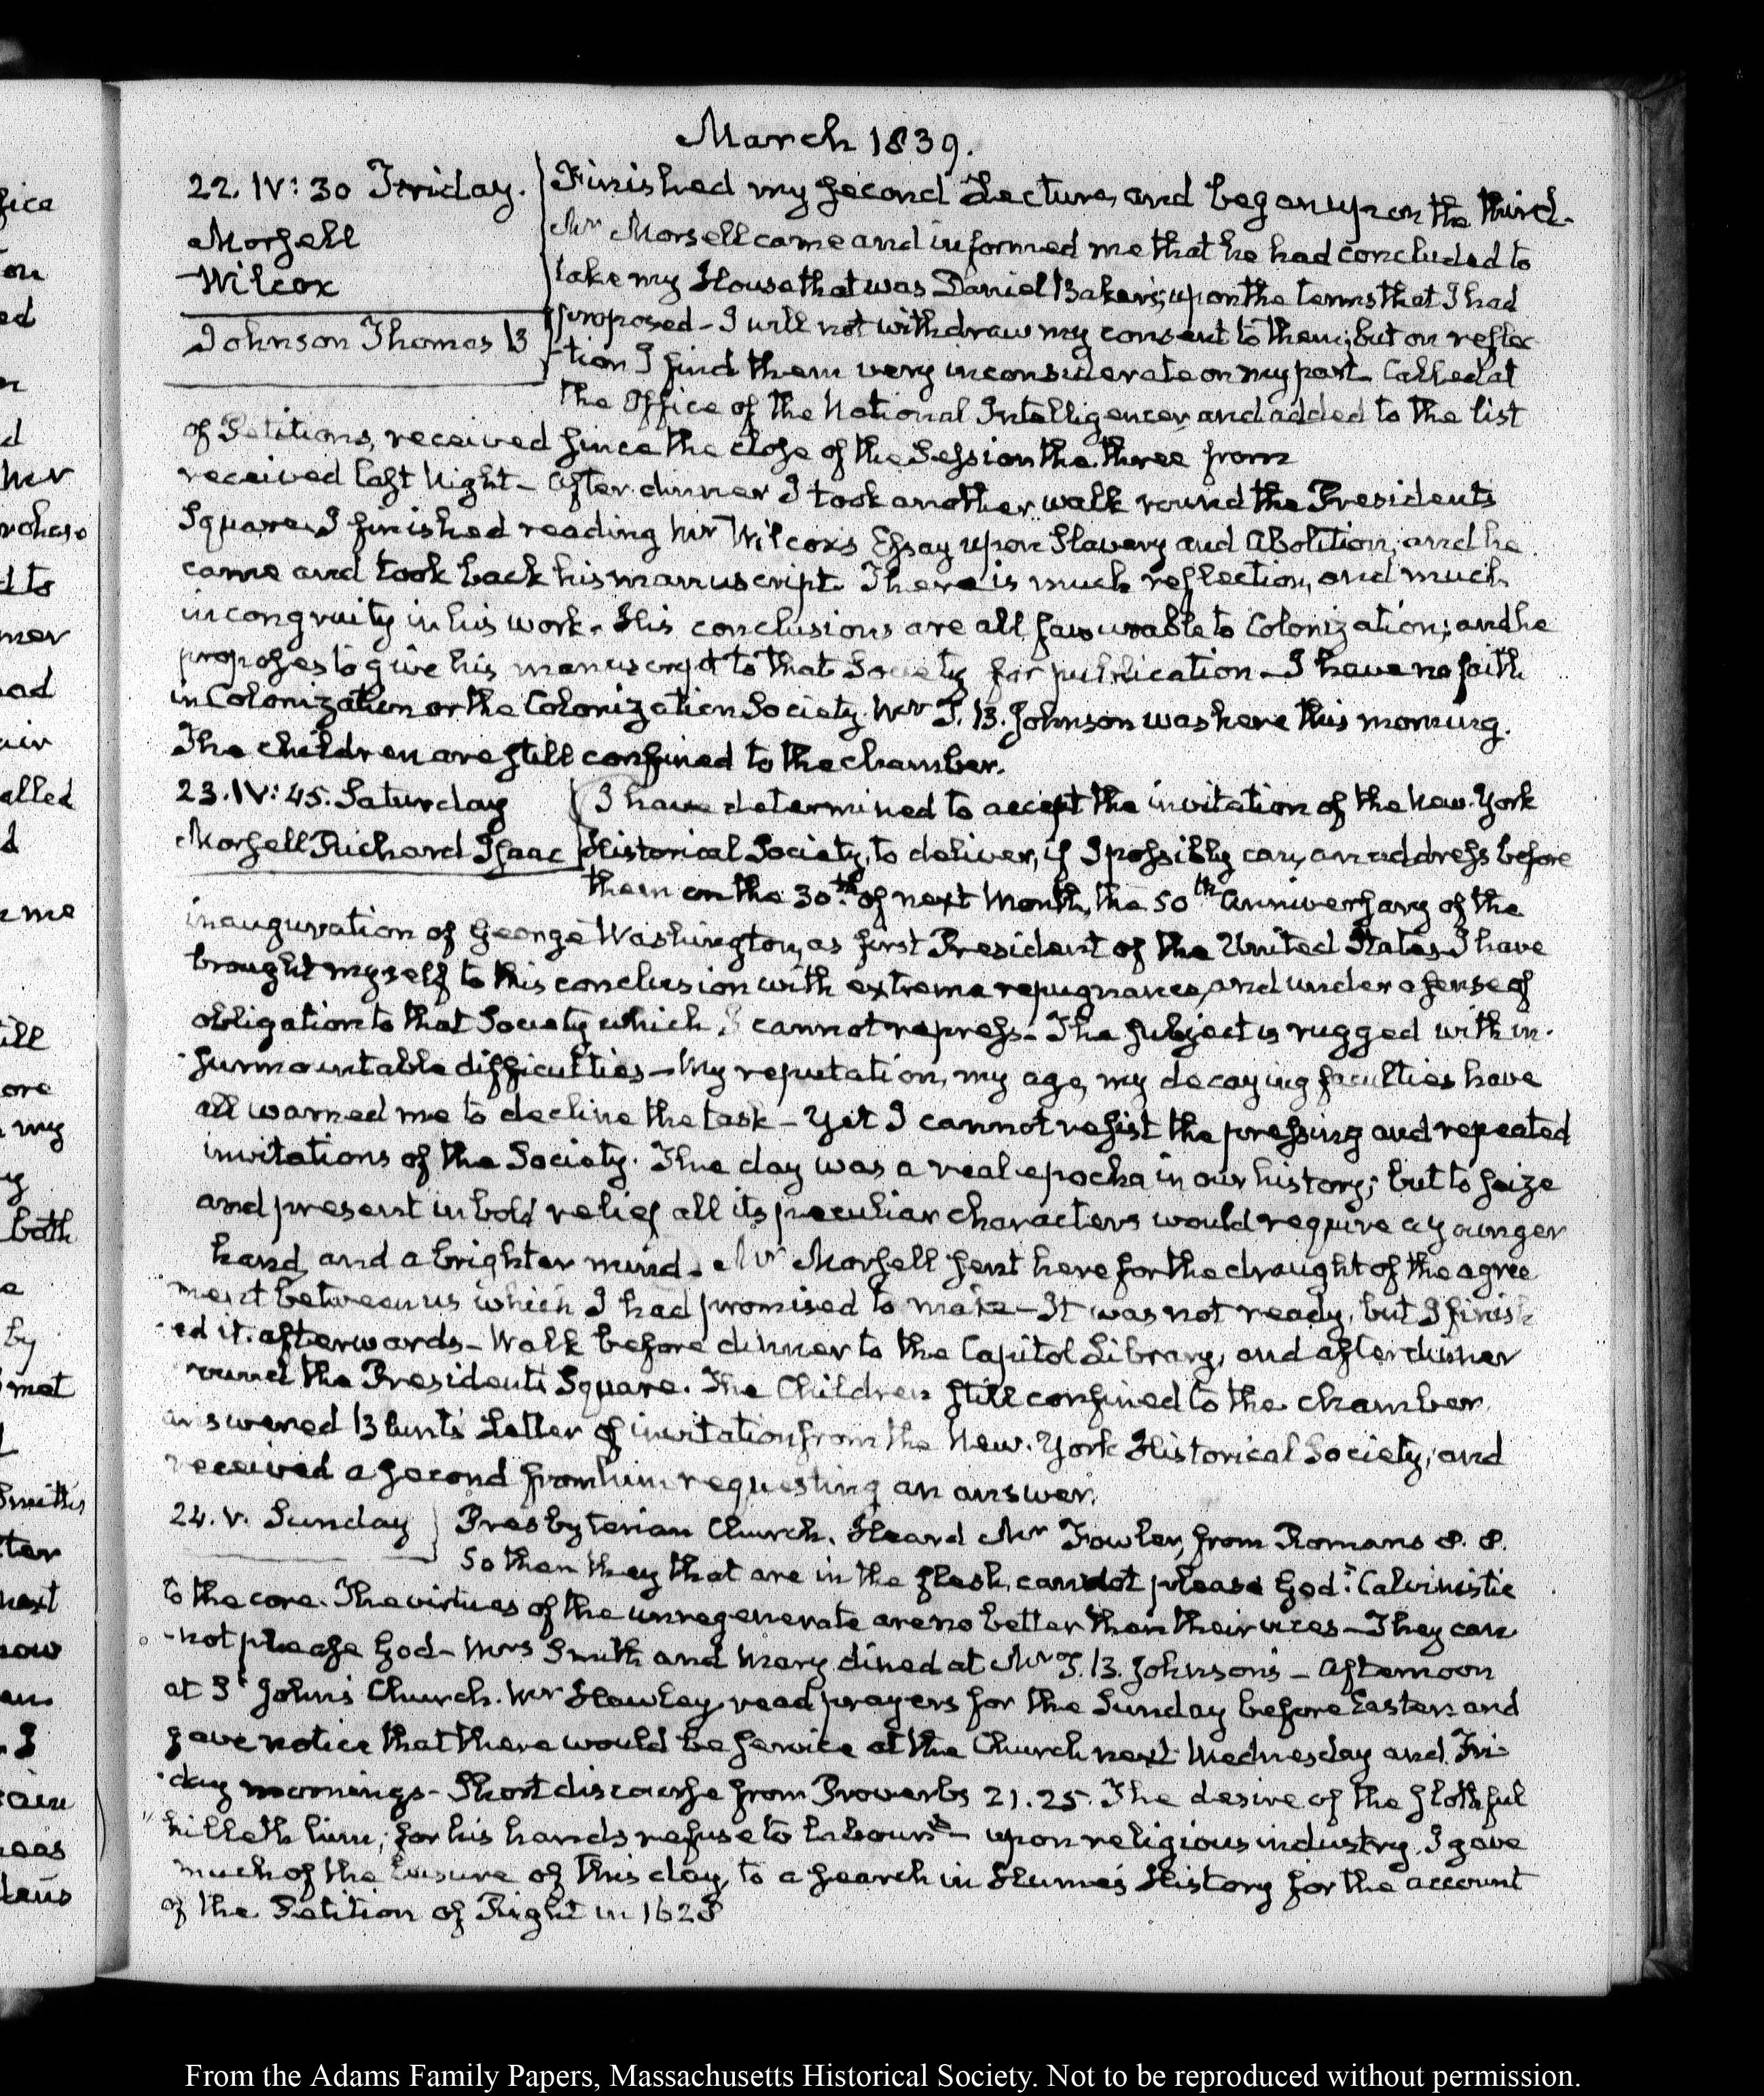 March 1839.
22. IV: 30 Friday.
Morsell
Wilcox
Johnson Thomas B
Finished my second Lecture, and began upon the third.
Mr Morsell came and informed me that he had concluded to
take my House that was Daniel Baker's, upon the terms that I had
proposed - I will not withdraw my consent to them; but on reflec
-tion I find them very inconsiderate on my part. Called at
the Office of the National Intelligencer and added to the list
of Petitions, received since the close of the Session the three from
received last Night - After dinner I took another walk round the Presidents
Square. I finished reading Mr Wilcox's Essay upon Slavery and Abolition, and he
came and took back his manuscript. There is much reflection, and much
incongruity in his work. His conclusions are all favourable to Colonization; and he
proposes to give his manuscript to that Society for publication - I have no faith
in Colonization or the Colonization Society. Mr T. B. Johnson was here this morning.
The children are still confined to the chamber.
23. IV: 45. Saturday
Morsell Richard Isaac
I have determined to accept the invitation of the New-York
Historical Society, to deliver, if I possibly can, an address before
them on the 30th of next Month, the 50th Anniversary of the
inauguration of George Washington, as first President of the United States. I have
brought myself to this conclusion with extreme repugnance, and under a sense of
obligation to that Society which I cannot repress - The subject is rugged with in-
surmountable difficulties - My reputation, my age, my decaying faculties have
all warned me to decline the task - Yet I cannot resist the pressing and repeated
invitations of the Society. The day was a real epocha in our history; but to seize
and present in bold relief all its peculiar characters would require a younger
hand, and a brighter mind. Mr Morsell sent here for the draught of the agree
ment between us which I had promised to make - It was not ready, but I finish
-ed it afterwards - Walk before dinner to the Capitol Library, and after dinner
round the Presidents Square. The Children still confined to the chamber.
answered Blunt's Letter of invitation from the New-York Historical Society, and
received a second from him requesting an answer.
24. V. Sunday
Presbyterian Church. Heard Mr Fowler, from Romans 8. 8.
So then they that are in the flesh, cannot please God." Calvinistic
to the core. The virtues of the unregenerate are no better than their vices - They can
-not please God - Mrs Smith and Mary dined at Mr T. B. Johnson's - Afternoon
at St John's Church. Mr Hawley read prayers for the Sunday before Easter and
gave notice that there would be service at the Church next Wednesday and Fri-
-day mornings - Short discourse from Proverbs 21. 25. The desire of the slothful
"killeth him; for his hands refuse to labour" - upon religious industry. I gave
much of the leisure of this day to a search in Hume's History for the account
of the Petition of Right in 1628
From the Adams Family Papers, Massachusetts Historical Society. Not to be reproduced without permission.